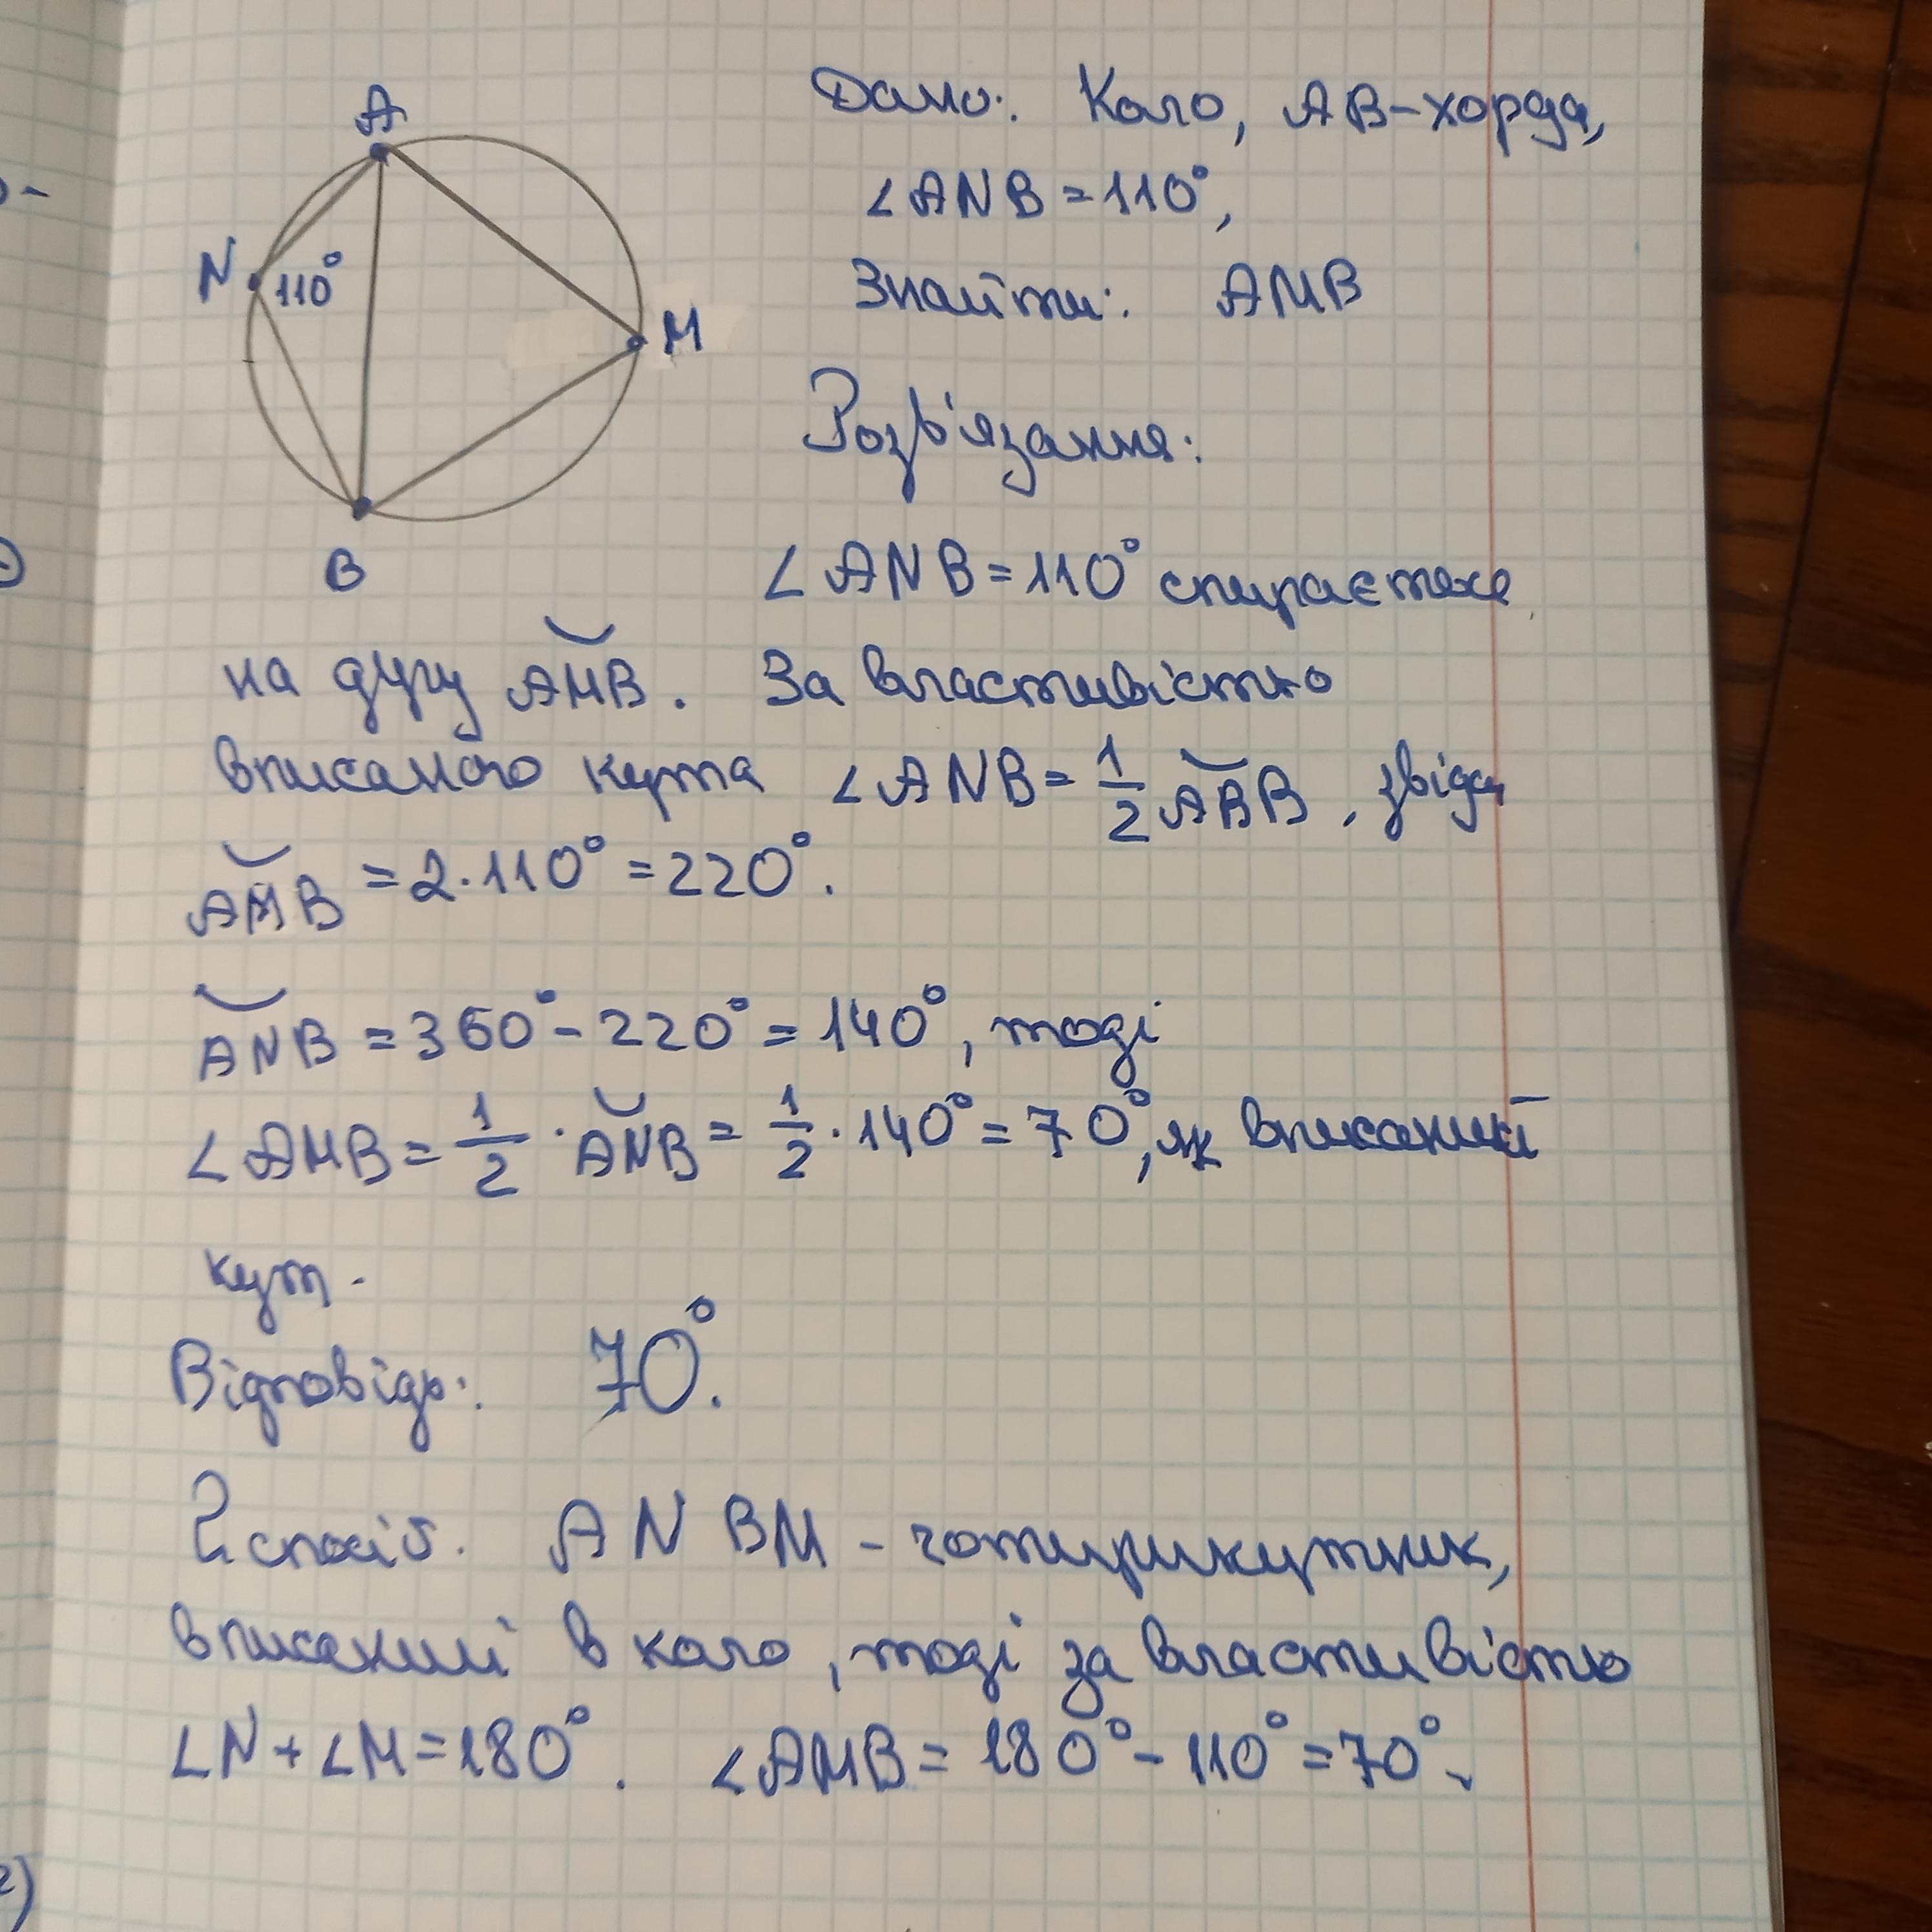 A
N
110°
M
B
Дано: Коло, AB-хорда,
∠ANB=110°,
Знайти: AMB
Розв'язання:
∠ANB=110° спирається
на дугу AMB. За властивістю
вписаного кута ∠ANB=1/2 ABB, звідси
AMB =2·110°=220°.
ANB =360°-220°=140°, тоді
∠AMB=1/2·ANB=1/2·140°=70°, як вписаний
кут.
Відповідь: 70°.
2 спосіб. ANBM-чотирикутник,
вписаний в коло, тоді за властивістю
∠N+∠M=180°. ∠AMB=180°-110°=70°.
2)